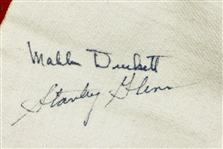 Mahlon Duckett
Stanley Glenn